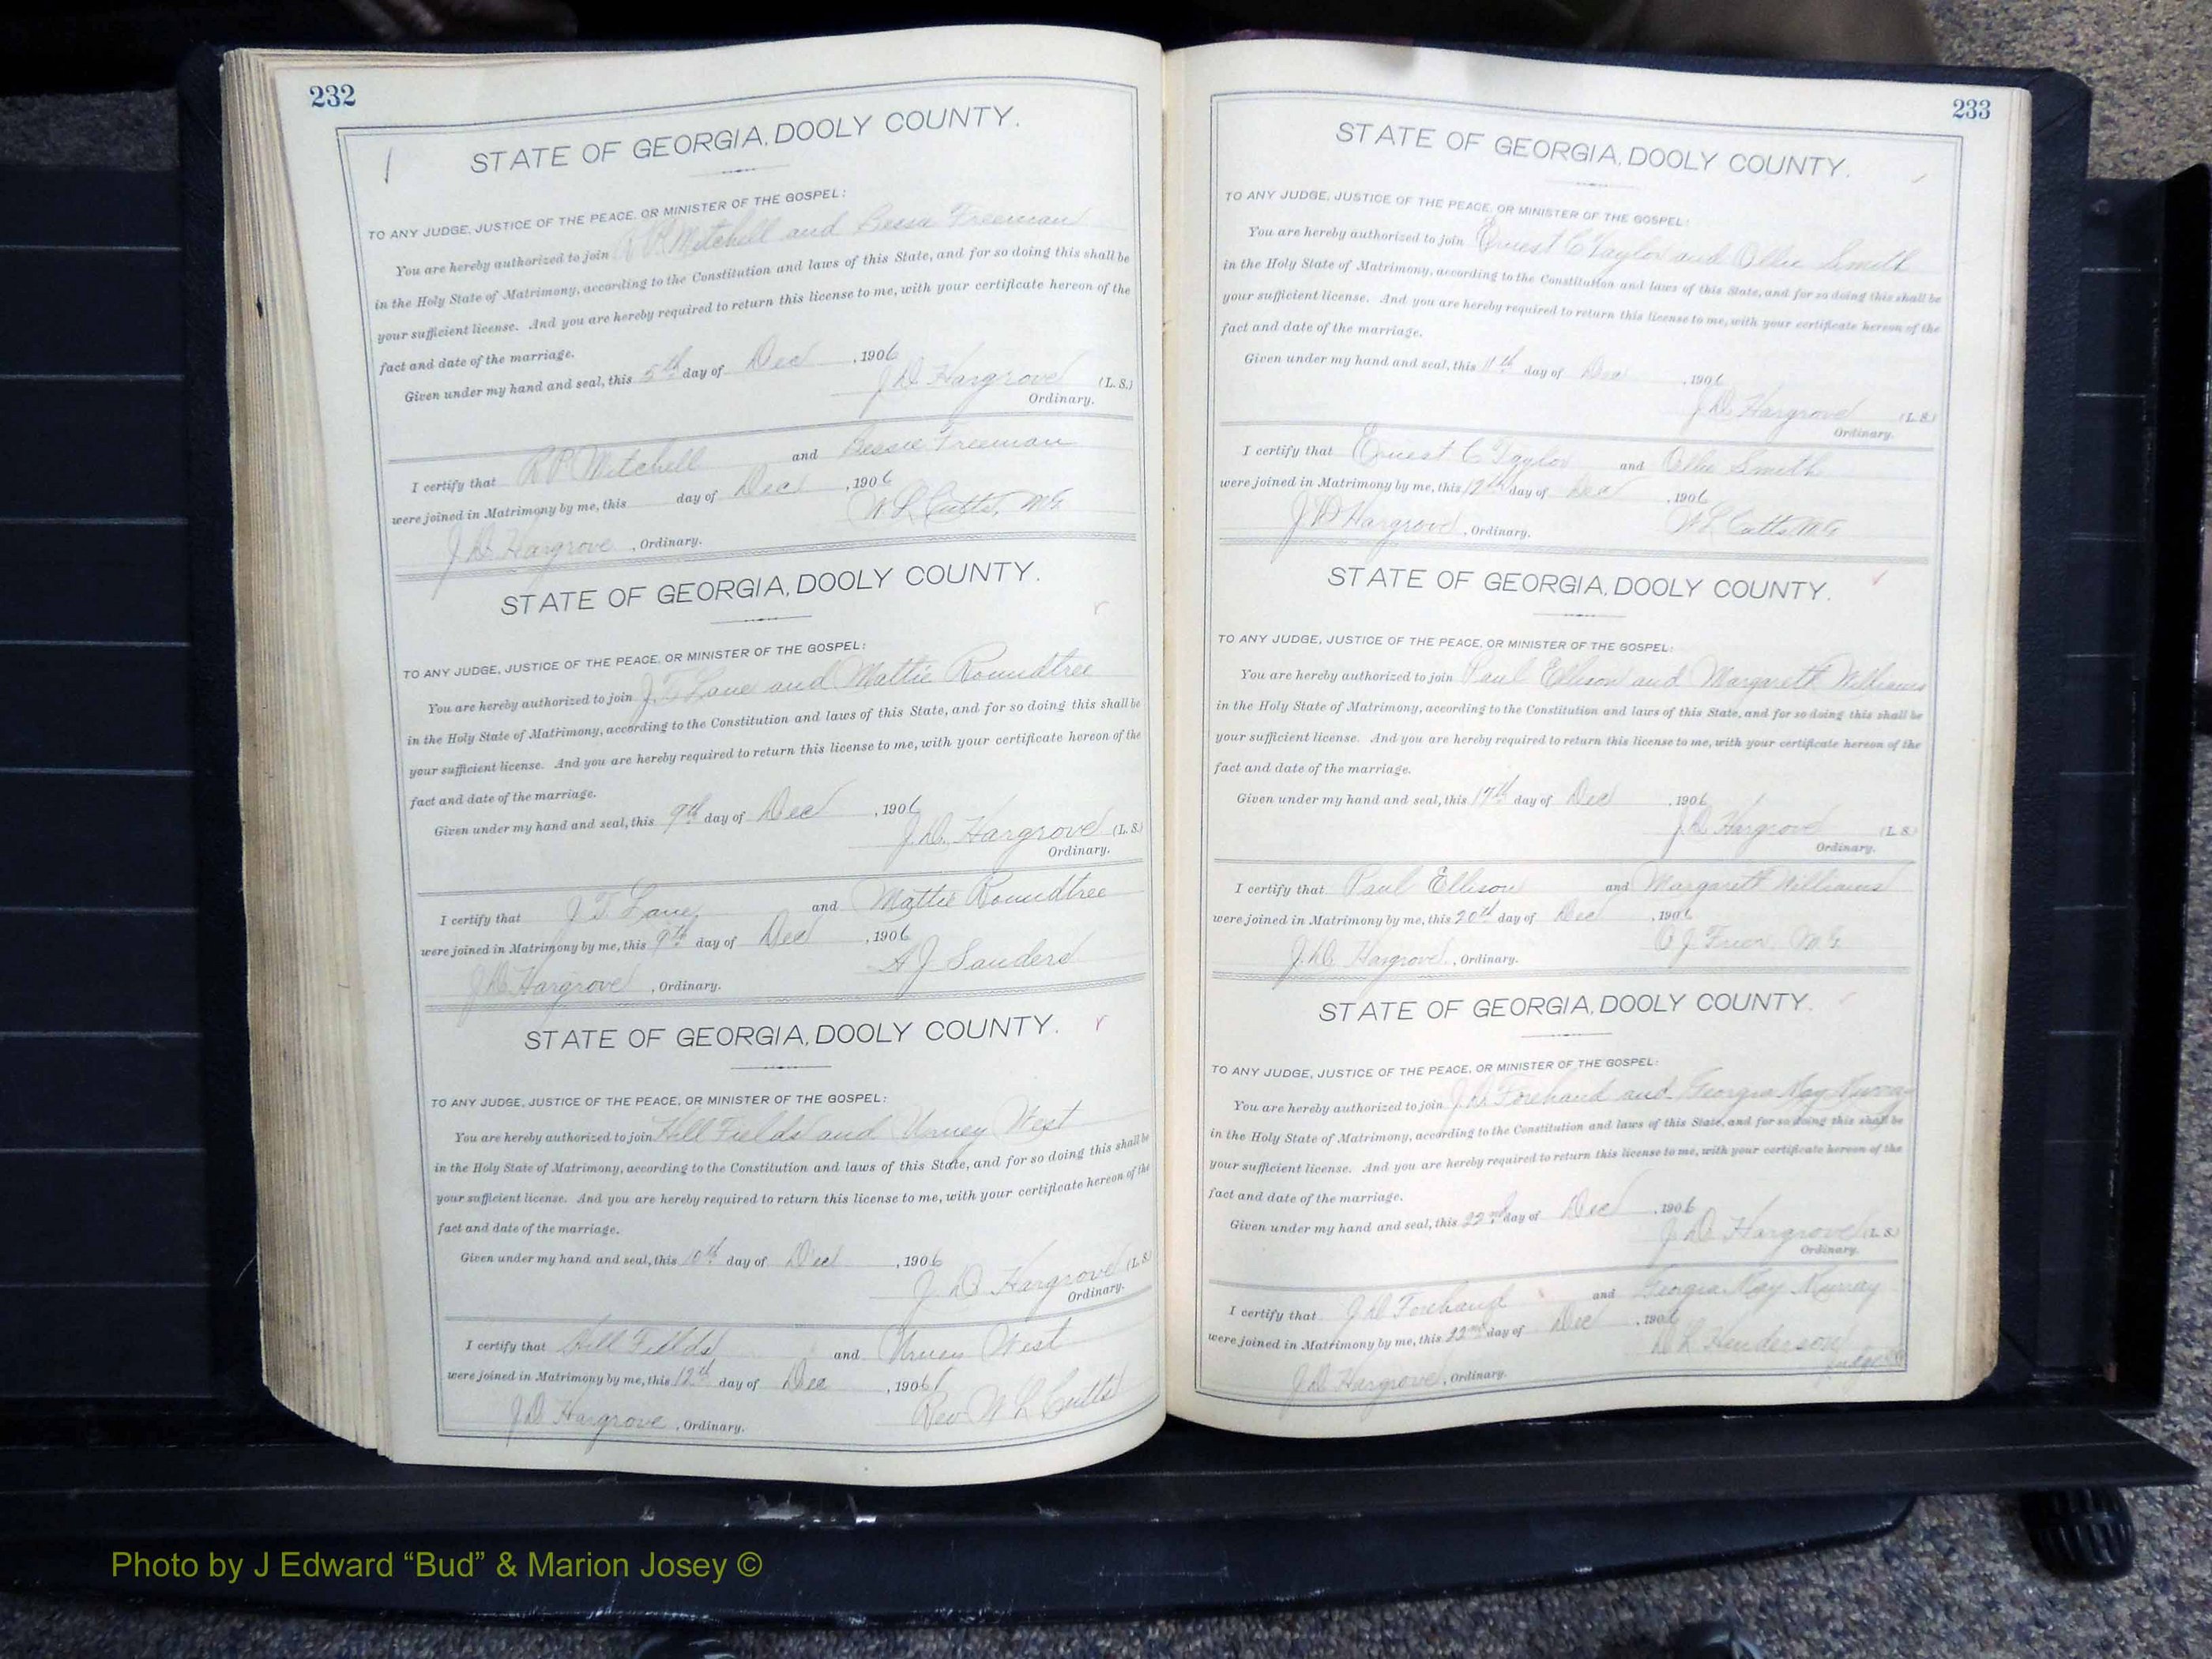 232
STATE OF GEORGIA, DOOLY COUNTY.
TO ANY JUDGE, JUSTICE OF THE PEACE, OR MINISTER OF THE GOSPEL:
You are hereby authorized to join R P Mitchell and Bessie Freeman
in the Holy State of Matrimony, according to the Constitution and laws of this State, and for so doing this shall be
your sufficient license. And you are hereby required to return this license to me, with your certificate hereon of the
fact and date of the marriage.
Given under my hand and seal, this 5th day of Dec , 1906
J D Hargrove (L. S.)
Ordinary.
I certify that R P Mitchell and Bessie Freeman
were joined in Matrimony by me, this day of Dec , 1906
J D Hargrove , Ordinary. W L Cutts, MG
STATE OF GEORGIA, DOOLY COUNTY.
TO ANY JUDGE, JUSTICE OF THE PEACE, OR MINISTER OF THE GOSPEL:
You are hereby authorized to join J T Lane and Mattie Roundtree
in the Holy State of Matrimony, according to the Constitution and laws of this State, and for so doing this shall be
your sufficient license. And you are hereby required to return this license to me, with your certificate hereon of the
fact and date of the marriage.
Given under my hand and seal, this 9th day of Dec , 1906
J. D. Hargrove (L. S.)
Ordinary.
I certify that J T Lane and Mattie Roundtree
were joined in Matrimony by me, this 9th day of Dec , 1906
J D Hargrove , Ordinary. A J Sanders
STATE OF GEORGIA, DOOLY COUNTY.
TO ANY JUDGE, JUSTICE OF THE PEACE, OR MINISTER OF THE GOSPEL:
You are hereby authorized to join Hill Fields and West
in the Holy State of Matrimony, according to the Constitution and laws of this State, and for so doing this shall be
your sufficient license. And you are hereby required to return this license to me, with your certificate hereon of the
fact and date of the marriage.
Given under my hand and seal, this 10th day of Dec , 1906
J D Hargrove (L. S.)
Ordinary.
I certify that Hill Fields and West
were joined in Matrimony by me, this 12th day of Dec , 1906
J D Hargrove , Ordinary. Rev W L Cutts
233
STATE OF GEORGIA, DOOLY COUNTY.
TO ANY JUDGE, JUSTICE OF THE PEACE, OR MINISTER OF THE GOSPEL:
You are hereby authorized to join Ernest C Taylor and Ollie Smith
in the Holy State of Matrimony, according to the Constitution and laws of this State, and for so doing this shall be
your sufficient license. And you are hereby required to return this license to me, with your certificate hereon of the
fact and date of the marriage.
Given under my hand and seal, this 11th day of Dec , 1906
J D Hargrove (L. S.)
Ordinary.
I certify that Ernest C Taylor and Ollie Smith
were joined in Matrimony by me, this 12th day of Dec , 1906
J D Hargrove , Ordinary. W L Cutts MG
STATE OF GEORGIA, DOOLY COUNTY.
TO ANY JUDGE, JUSTICE OF THE PEACE, OR MINISTER OF THE GOSPEL:
You are hereby authorized to join Paul Ellison and Margarett Williams
in the Holy State of Matrimony, according to the Constitution and laws of this State, and for so doing this shall be
your sufficient license. And you are hereby required to return this license to me, with your certificate hereon of the
fact and date of the marriage.
Given under my hand and seal, this 17th day of Dec , 1906
J D Hargrove (L. S.)
Ordinary.
I certify that Paul Ellison and Margarett Williams
were joined in Matrimony by me, this 20th day of Dec , 1906
J. D. Hargrove , Ordinary. MG
STATE OF GEORGIA, DOOLY COUNTY.
TO ANY JUDGE, JUSTICE OF THE PEACE, OR MINISTER OF THE GOSPEL:
You are hereby authorized to join J D Forehand and Georgia May Murray
in the Holy State of Matrimony, according to the Constitution and laws of this State, and for so doing this shall be
your sufficient license. And you are hereby required to return this license to me, with your certificate hereon of the
fact and date of the marriage.
Given under my hand and seal, this 22nd day of Dec , 1906
J D Hargrove (L. S.)
Ordinary.
I certify that J D Forehand and Georgia May Murray
were joined in Matrimony by me, this 22nd day of Dec , 1906
J D Hargrove , Ordinary. D L Henderson
Judge
Photo by J Edward “Bud” & Marion Josey ©